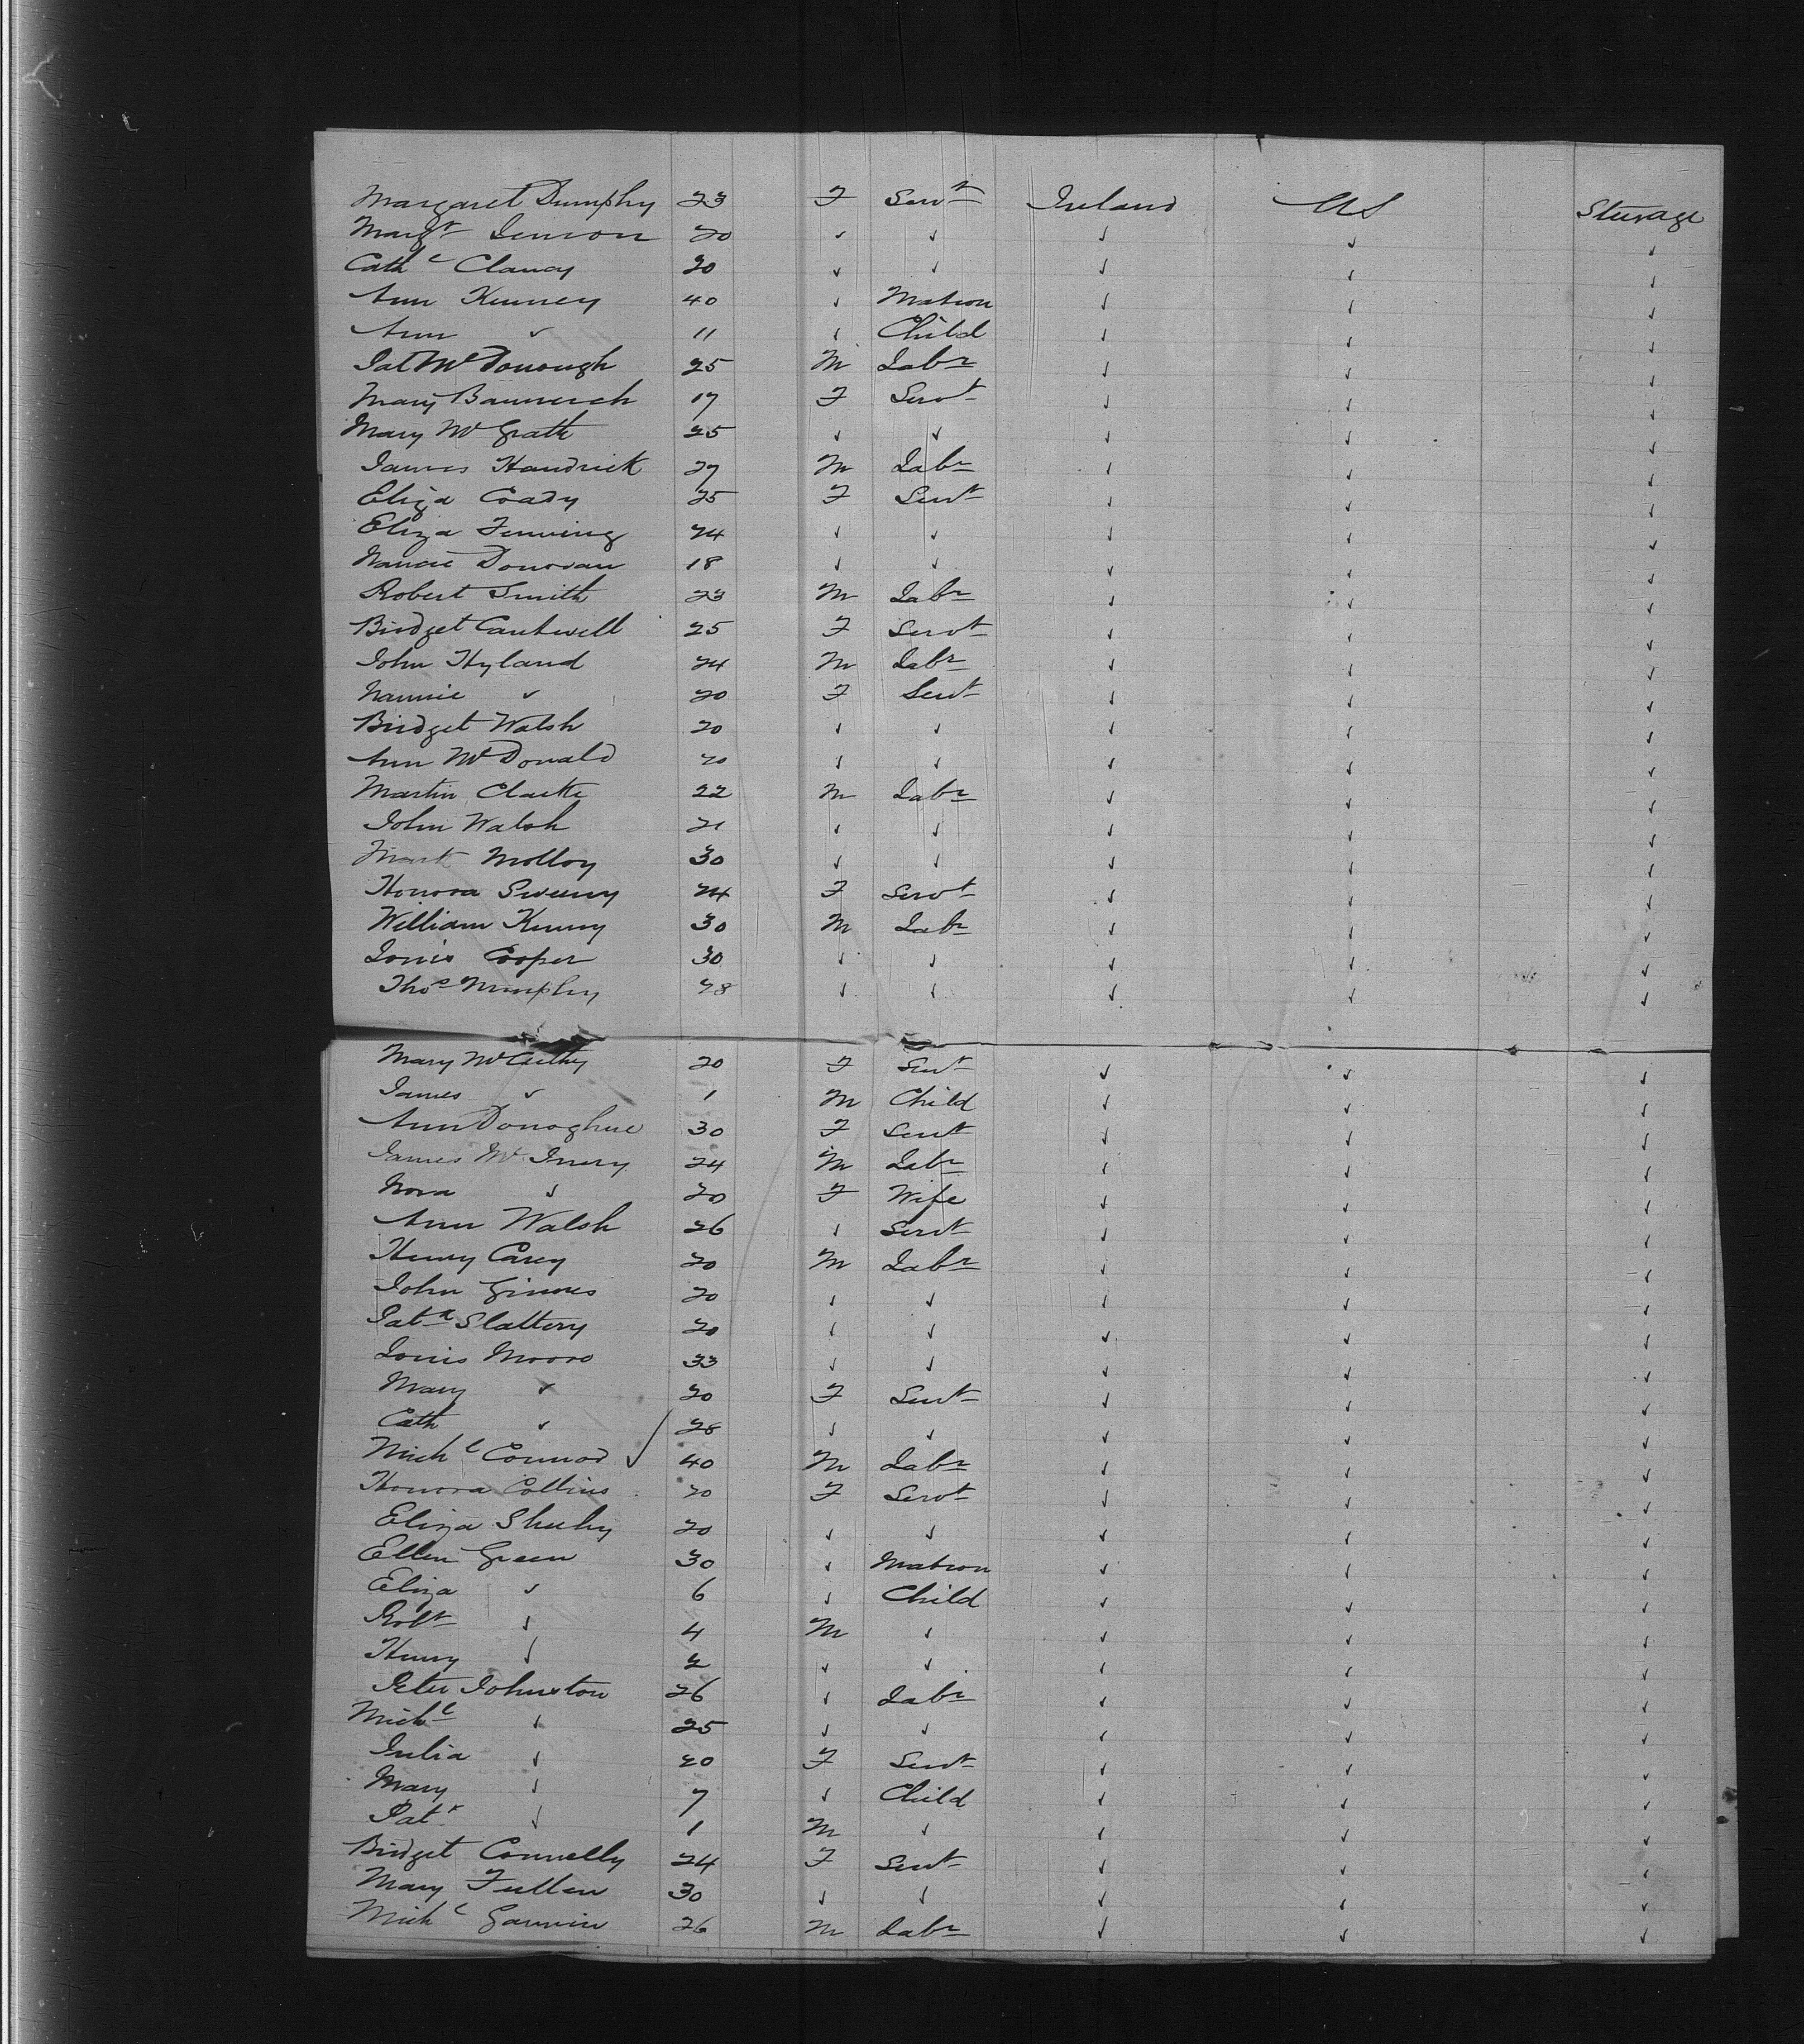 Margaret Dumphy 23 F Servt Ireland US Sturage
Margt Lennon 20 " " " " "
Cathe Clancy 20 " " " " "
Ann Kenney 40 " Matron " " "
Ann " 11 " Child " " "
Pat McDonough 25 M Labr " " "
Mary 17 F Servt " " "
Mary McGrath 25 " " " " "
James Handrick 27 M Labr " " "
Eliza Coady 25 F Servt " " "
Eliza Fenning 24 " " " " "
Nancie Donovan 18 " " " " "
Robert Smith 23 M Labr " " "
Bridget Cantwell 25 F Servt " " "
John Hyland 24 M Labr " " "
Nannie " 20 F Servt " " "
Bridget Walsh 20 " " " " "
Ann McDonald 20 " " " " "
Martin Clarke 22 M Labr " " "
John Walsh 21 " " " " "
Mark Molloy 30 " " " " "
Honora Sweeny 24 F Servt " " "
William Kenny 30 M Labr " " "
Louis Cooper 30 " " " " "
Thos Murphy 28 " " " " "
Mary 20 F Servt " " "
James " 1 M Child " " "
Ann Donoghue 30 F Servt " " "
James McInery 24 M Labr " " "
Nora " 20 F Wife " " "
Ann Walsh 26 " Servt " " "
Henry Carey 20 M Labr " " "
John Grimes 20 " " " " "
Patk Slattery 20 " " " " "
Louis Moore 33 " " " " "
Mary " 20 F Servt " " "
Cath " 28 " " " " "
Michl Connor 40 M Labr " " "
Honora Collins 20 F Servt " " "
Eliza Sheehy 20 " " " " "
Ellen Green 30 " Matron " " "
Eliza " 6 " Child " " "
Robt " 4 M " " " "
Henry " 2 " " " " "
Peter Johnston 26 " Labr " " "
Michl " 25 " " " " "
Julia " 20 F Servt " " "
Mary " 7 " Child " " "
Patk " 1 M " " " "
Bridget Connelly 24 F Servt " " "
Mary Fullen 30 " " " " "
Michl Gannin 26 M Labr " " "